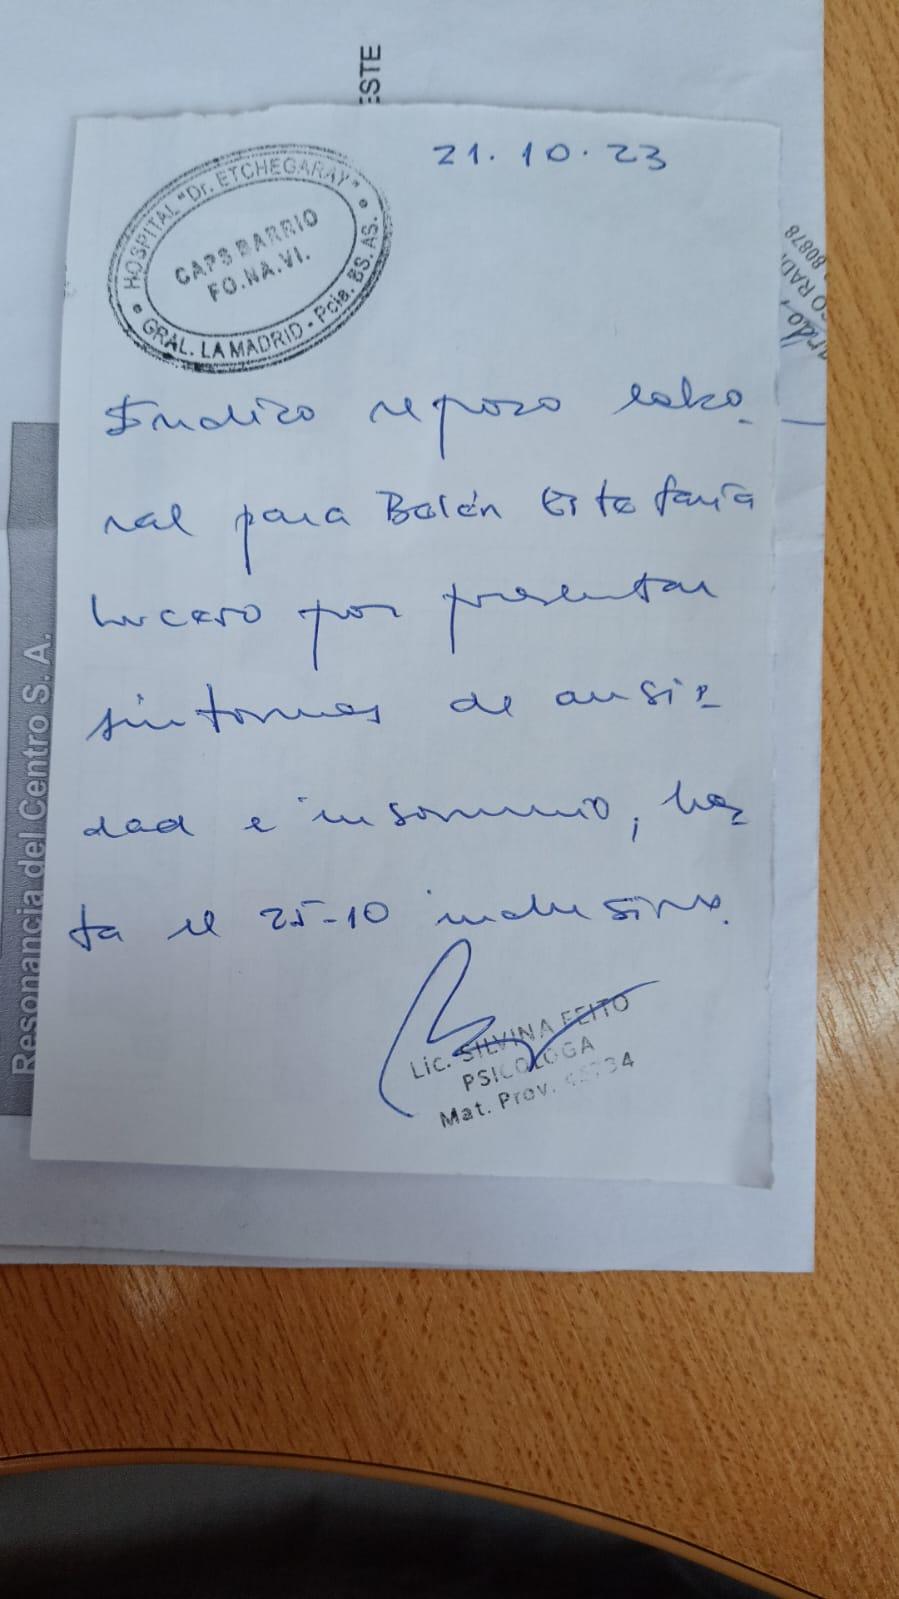 ESTE
HOSPITAL "Dr. ETCHEGARAY"
CAPS BARRIO
FO.NA.VI.
GRAL. LA MADRID - Pcia. BS. AS.
21.10.23
Indico reposo labo-
ral para Belén Estefanía
Lucero por presentar
síntomas de ansie-
dad e insomnio, has-
ta el 25-10 inclusive.
Lic. SILVINA FEITO
PSICOLOGA
Mat. Prov.
Resonancia del Centro S. A.
80878